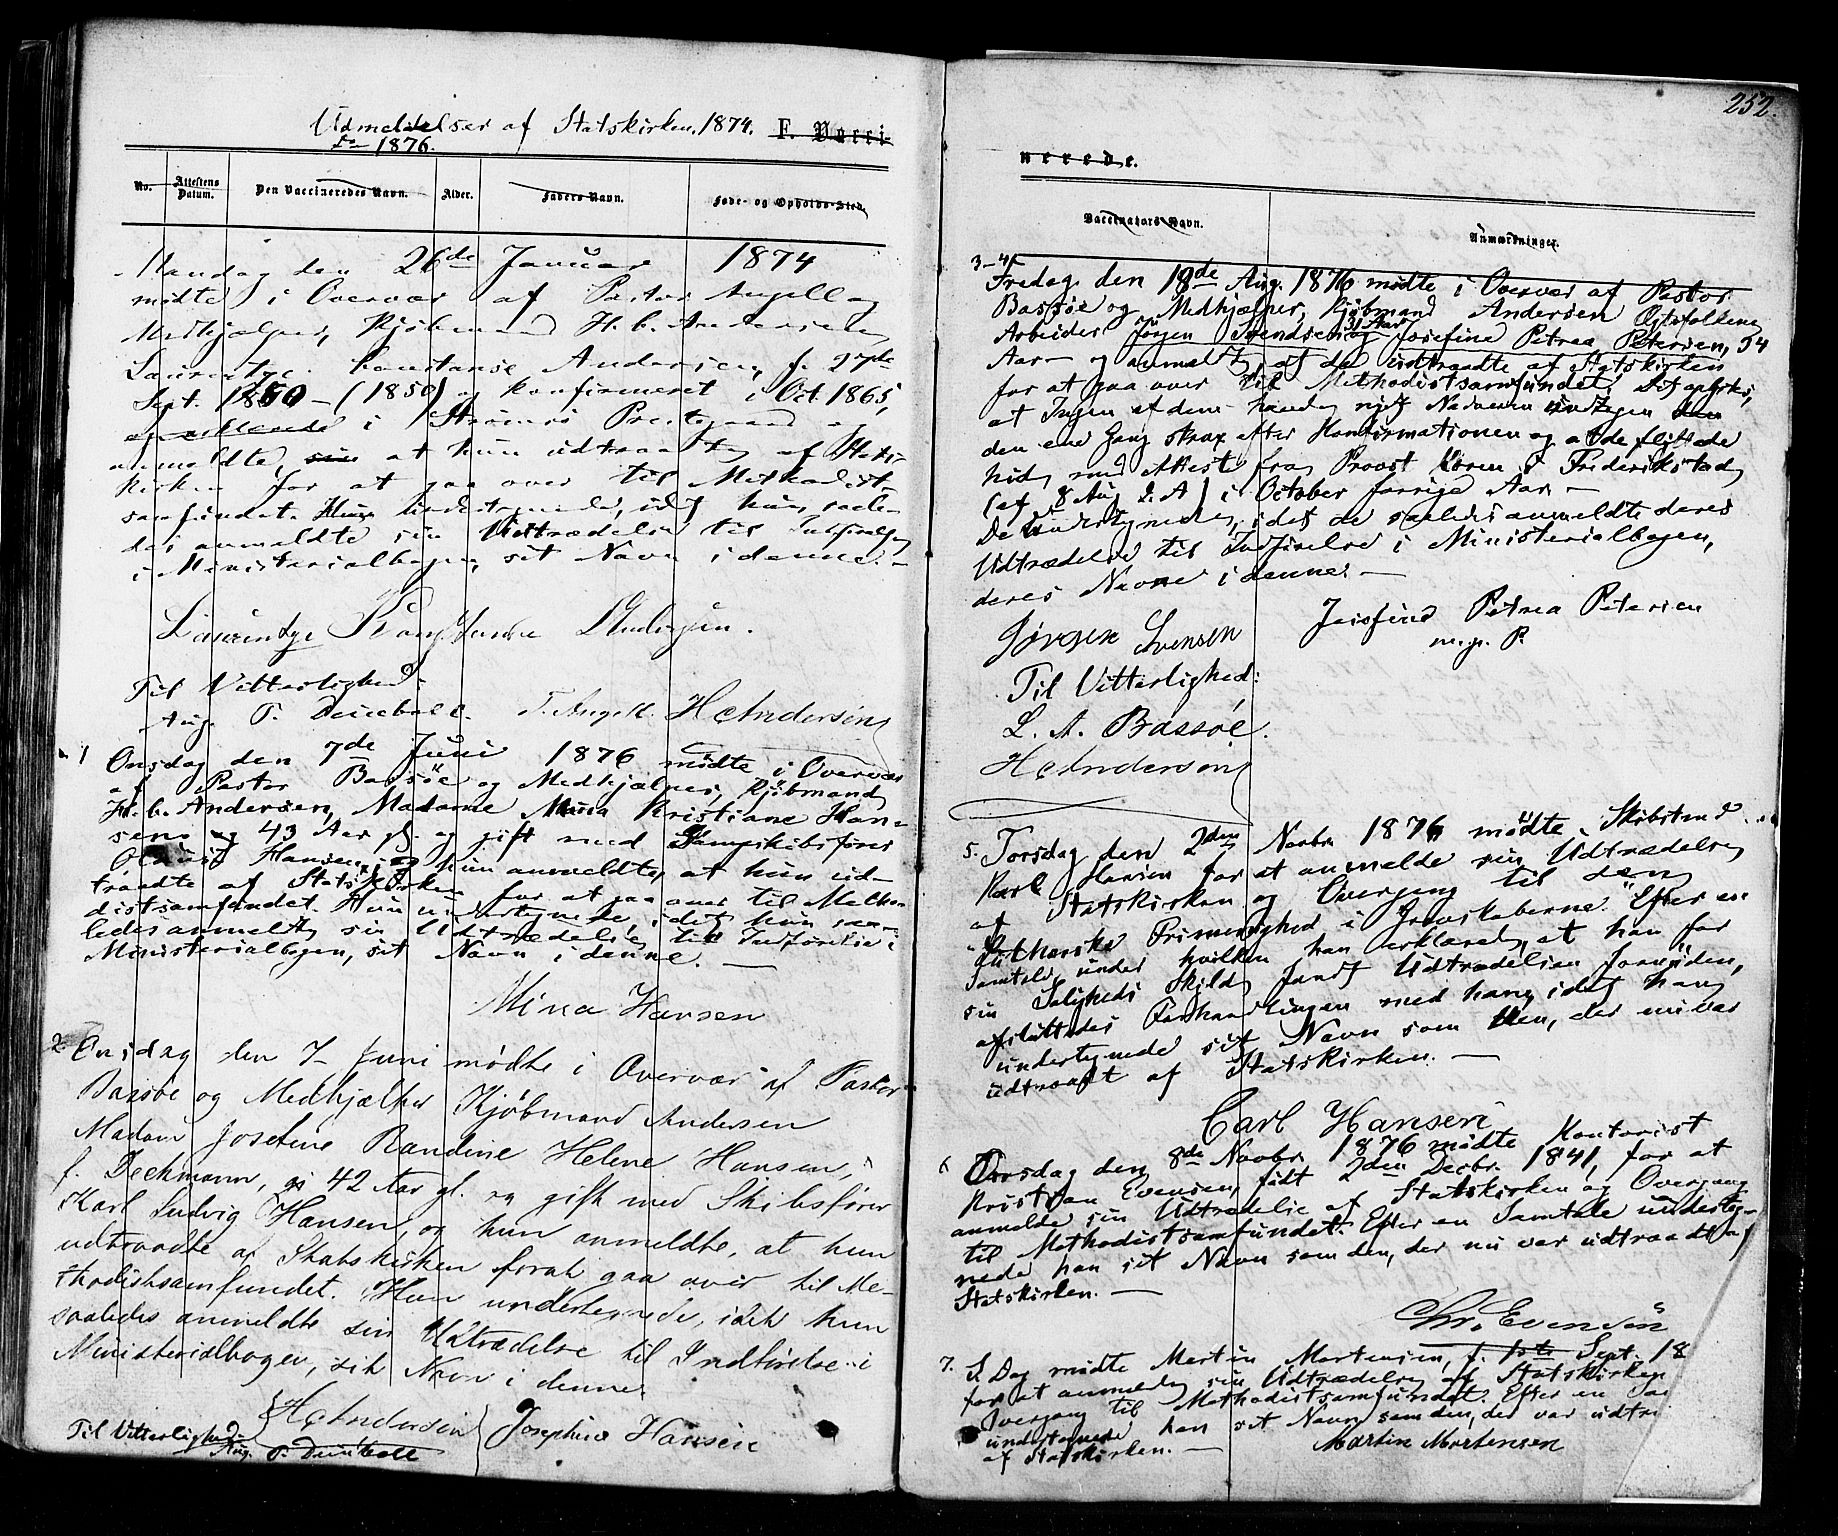 Udmeldelser af Statskirken, 1874. F. Vacci-
Do 1876.
No. Attestens Datum. Den Vaccineredes Navn. Alder. Faders Navn. Føde- og Opholds-Sted.
Mandag den 26de Januar 1874
mødte i Overvær af Pastor Angell og
Medhjælper, Kjøbmand H. C. Andersen
Laurentze Constanse Andersen, f. 27de
Sept. 1850 - (1850) - konfirmeret i Oct. 1865,
i Strømsø Prestegaard og
anmeldte, at hun udtraadte af Stats-
kirken for at gaa over til Methodist-
samfundet. Hun undertegnede, idet hun saale-
des anmeldte sin Udtrædelse til Indførelse
i Ministerialbogen, sit Navn i denne. -
Laurentze Konstandse Andersen.
Til Vitterlighed:
Aug. T. Deinboll. T. Angell. HCAndersen
1 Onsdag den 7de Juni 1876 mødte i Overvær
af Pastor Bassøe og Medhjælper, Kjøbmand
H. C. Andersen, Madame Mina Kristiane Han-
sen, 43 Aar gl. og gift med Dampskibsfører
Hansen, og hun anmeldte, at hun ud-
traadte af Statskirken for at gaa over til Metho-
distsamfundet. Hun undertegnede, idet hun saa-
ledes anmeldte sin Udtrædelse til Indførelse i
Ministerialbogen, sit Navn i denne. -
Mina Hansen
2. Onsdag den 7. Juni mødte i Overvær af Pastor
Bassøe og Medhjælper Kjøbmand Andersen
Madam Josefine Randine Helene Hansen,
f. Deckmann, 42 Aar gl. og gift med Skibsfører
Karl Ludvig Hansen, og hun anmeldte, at hun
udtraadte af Statskirken forat gaa over til Me-
thodistsamfundet. Hun undertegnede, idet hun
saaledes anmeldte sin Udtrædelse til Indførelse i
Ministerialbogen, sit Navn i denne.
HCAndersen Josephine Hansen
Til Vitterlighed:
Aug. T. Deinboll
252.
nerede.
Vaccinators Navn. Anmærkninger.
3-4
Fredag den 18de Aug. 1876 mødte i Overvær af Pastor
Bassøe og Medhjælper, Kjøbmand Andersen Egtefolkene
Arbeider Jørgen Svendsen 31 Aar og Josefine Petrea Petersen, 34
Aar - og anmeldte, at de udtraadte af Statskirken
for at gaa over til Methodistsamfundet. Det oplystes,
at Ingen af dem havde nydt Nadveren uden
den ene Gang strax efter Konfirmationen og at de flyttede
hid med Attest fra Provst Koren i Frederikstad
(af 8 Aug. d. A.) i October forrige Aar. -
De undertegnede, idet de saaledes anmeldte deres
Udtrædelse til Indførelse i Ministerialbogen,
deres Navne i denne. -
Jørgen Svensen Josefine Petrea Petersen
m. p. P.
Til Vitterlighed:
L. A. Bassøe.
HCAndersen
5. Torsdag den 2den Novbr. 1876 mødte Skibstmd.
Karl Hansen for at anmelde sin Udtrædelse
af Statskirken og Overgang til den
"Lutherske Frimenighed i Grevskaberne." Efter en
Samtale, under hvilken han erklærede, at han for
sin Saligheds Skyld fandt Udtrædelsen fornøden,
afsluttedes Forhandlingen med ham, idet han
undertegnede sit Navn som den, der nu var
udtraadt af Statskirken. -
Carl Hansen
6 Onsdag den 8de Novbr. 1876 mødte Kontorist
Kristian Evensen, født 2den Decbr. 1841, for at
anmelde sin Udtrædelse af Statskirken og Overgang
til Methodistsamfundet. Efter en Samtale underteg-
nede han sit Navn som den, der nu var udtraadt af
Statskirken. -
Chr. Evensen
7. S. Dag mødte Martin Mortensen, f. Sept. 18
for at anmelde sin Udtrædelse af Statskirken
Overgang til Methodistsamfundet. Efter en
undertegnede han sit Navn som den, der var
af Statskirken. -
Martin Mortensen